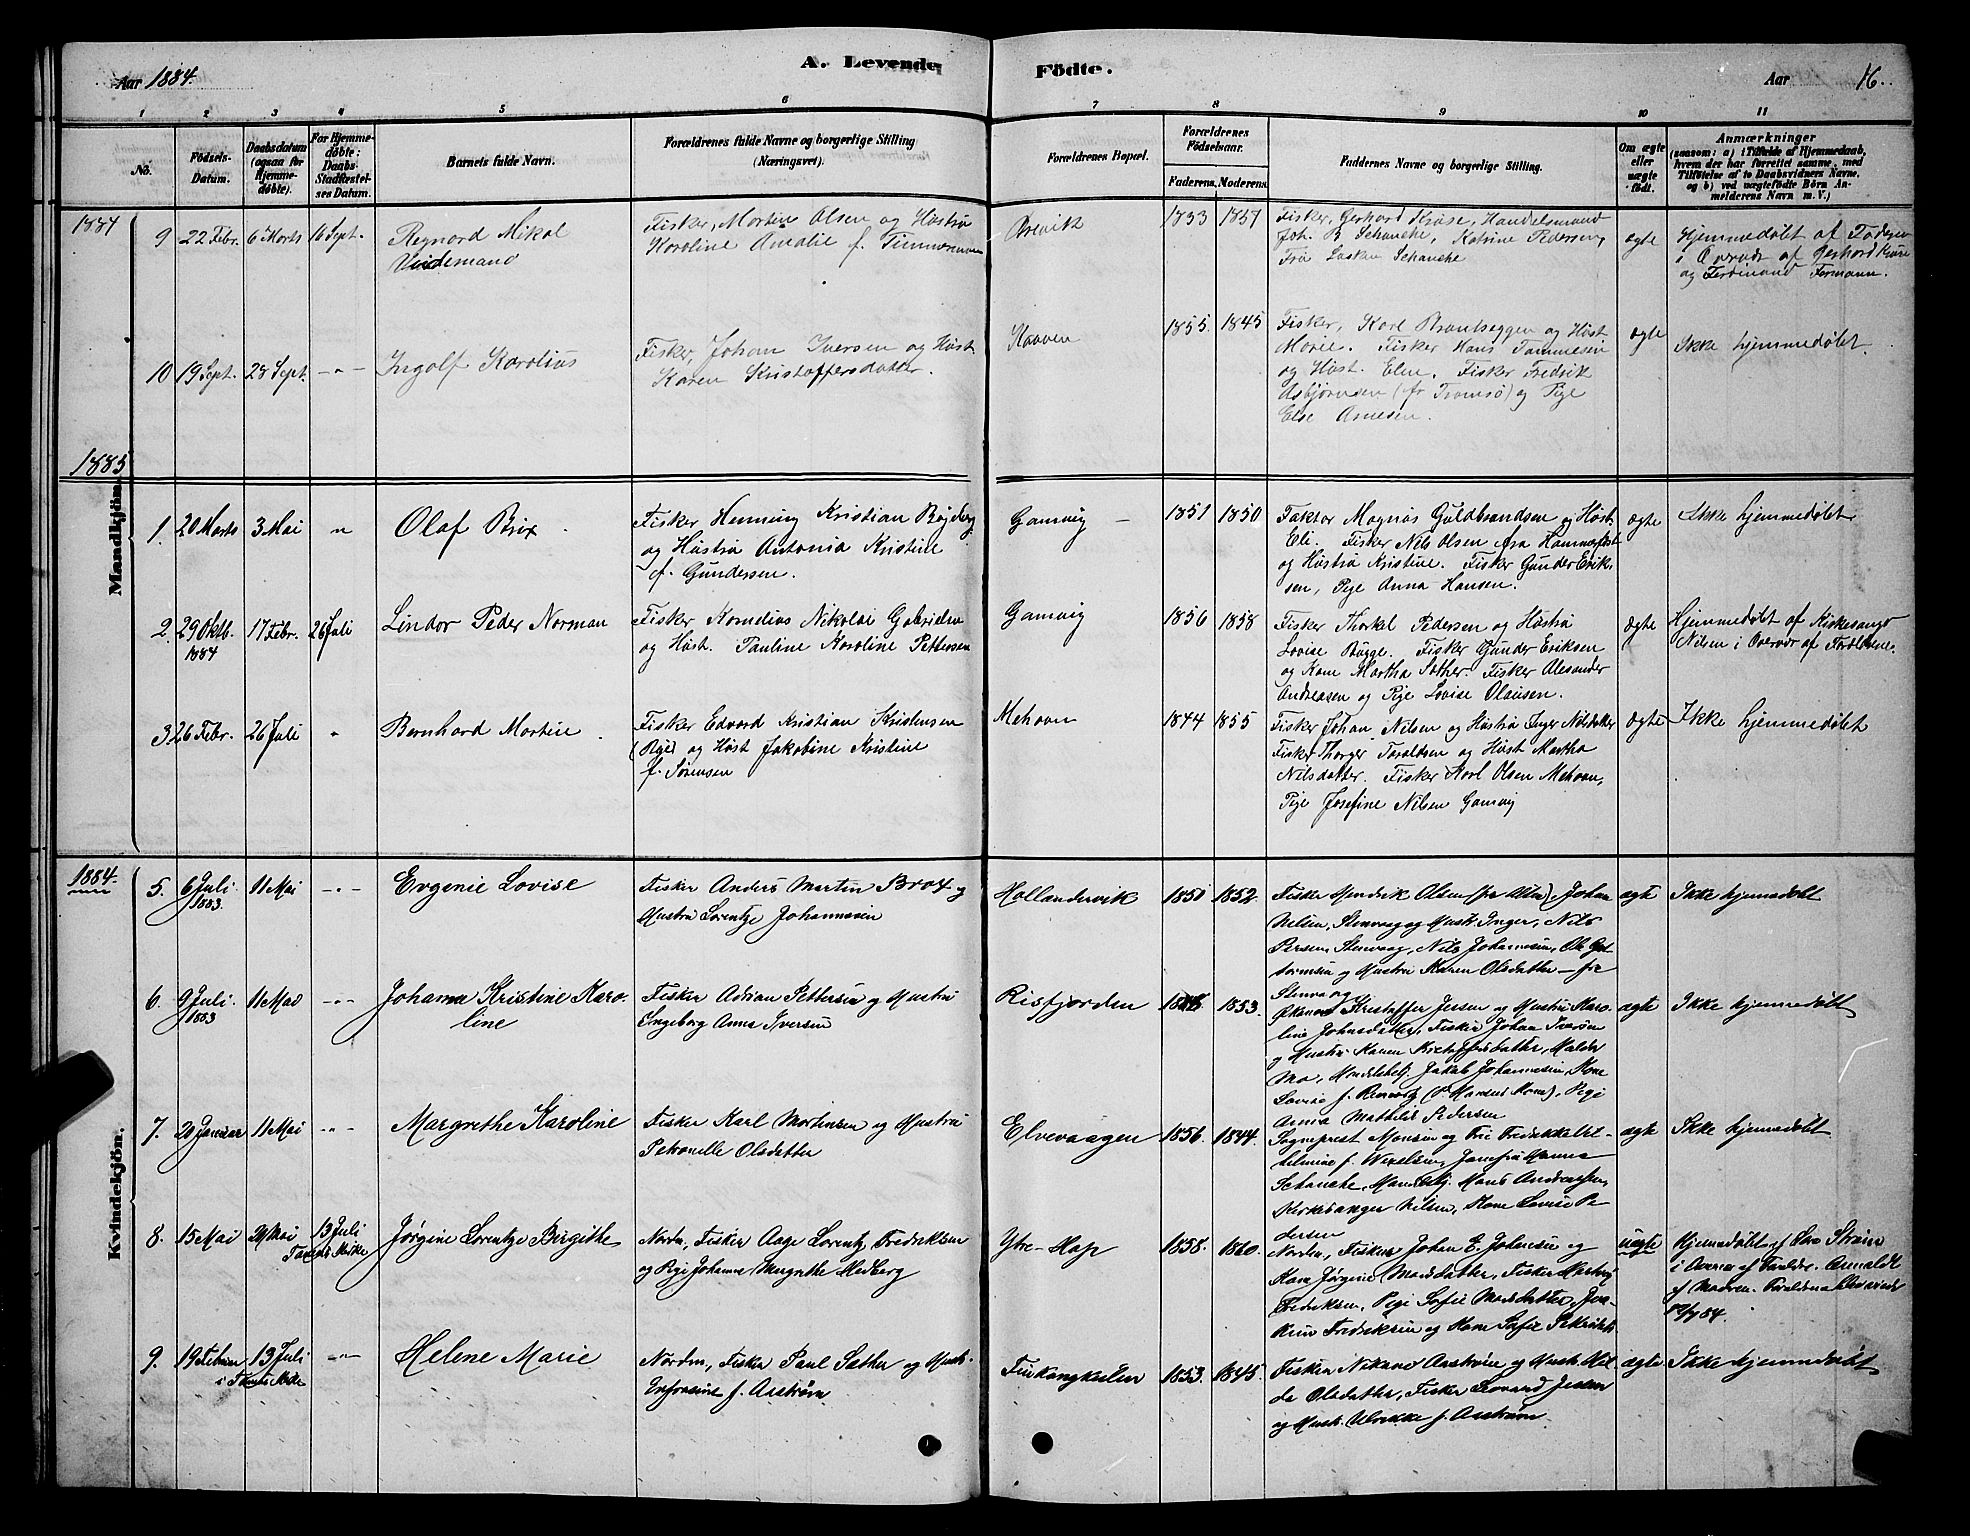 Aar 1884.
A. Levende
Födte.
Aar
16.
1 2 3 4 5 6 7 8 9 10 11
No.
Födsels-
Datum.
Daabsdatum
(ogsaa for
Hjemme-
döbte).
For Hjemme-
döbte:
Daabs
Stadfæstel-
ses Datum.
Barnets fulde Navn.
Forældrenes fulde Navne og borgerlige Stilling
(Næringsvei).
Forældrenes Bopæl.
Forældrenes
Födselsaar.
Faderens. Moderens.
Faddernes Navne og borgerlige Stilling.
Om ægte
eller
uægte
födt.
Anmærkninger
(saasom: a) i Tilfælde af Hjemmedaab,
hvem der har forrettet samme, med
Tilföielse af to Daabsvidners Navne,
og b) ved uægtefödte Börn An-
melderens Navn m. V.)
Mandkjön.
1884
9 22 Febr. 6 Marts 16 Sept.
Reynord Mikal
Vindemand
Fisker, Morten Olsen og Hustru
Karoline Amalie f.
Brevik
1833 1857
Fisker, Gerhard Kruse, Handelsmand
Joh. B Schanche, Katrine Pedersen,
Frü Schanche
ægte
Hjemmedøbt af Faderen
i Overvær af Gerhard Kruse
og Ferdinand Formann.
10 19 Sept. 28 Sept. -"-
Ingolf Karolius
Fisker, Johan Iversen og Hust.
Karen Kristoffersdatter.
1855. 1845
Fisker, Karl og Hüst
Marie. Fisker Hans Tommesen
og Hüst. Elen. Fisker Fredrik
Asbjørnsen (fr Tromsø) og Pige
Else Arnesen.
ægte
Ikke hjemmedøbt.
1885
1. 20 Marts 3 Mai "
Olaf Brix
Fisker Henning Kristian
og Hüstrü Antonia Kristine
f. Gündersen.
Gamvig
1851 1850
Faktor Magnüs Güldbrandsen og Hüst.
Eli. Fisker Nils Olsen fra Hammerfest
og Hüstrü Kristine. Fisker Günder Erik-
sen, Pige Anna Hansen.
ægte
Ikke hjemmedøbt
2. 29 Oktb. 17 Febr. 26 Juli
1884
Lindor Peder Norman
Fisker Kornelius Nikolai Gabrielsen
og Hüst. Pauline Karoline Pettersen
Gamvig
1856 1858
Fisker Thorkel Pedersen og Hüstrü
Lovise Bügge. Fisker Günder Eriksen
og Kone Martha Sother. Fisker Alexander
Andreasen og Pige Lovise Olaüsen.
ægte
Hjemmedøbt af Kirkesanger
Nilsen i Overvær af Forældrene.
3 26 Febr. 26 Juli "
Bernhard Martin
Fisker Edvard Kristian Kristensen
og Hüst Jakobine Kristine
f. Sørensen
Mehavn
1844 1855
Fisker Johan Nilsen og Hüstrü Inger Nilsdatter
Fisker Thorger Toraldsen og Hüst Martha
Nilsdatter. Fisker Karl Olsen Mehavn,
Pige Josefine Nilsen Gamvig
ægte
Ikke hjemmedøbt
Kvindekjön.
1884.
5. 6 Juli 11 Mai -"-
1883.
Evgenie Lovise
Fisker Anders Martin Brox og
Hustru Lorentze Johannesen
Hollandervik
1850 1852.
Fisker Hendrik Olsen (fra Alten), Johan
Nilsen, Stenvaag og Hustr. Inger, Nils
Persen Stenvaag, Nils Johannesen, Ole
og Hustru Karen Olsdatter – fra
Stenvaag
ægte
Ikke hjemmedøbt
6. 9 Juli 11 Mai -"-
1883
Johanna Kristine Karo-
line
Fisker Adrian Pettersen og Hustru
Ingeborg Anna Iversen
Risfjorden
1853.
Kristoffer Jessen og Hustru Karo-
line Johnsdatter, Fisker Johan Iversen
og Hustru Karen Kristoffersdatter,
Jakob Johannesen, Kone
Lovise f. Pige
Anna Mathilde Pedersen
ægte
Ikke hjemmedøbt
7. 20 Januar 11 Mai -"-
Margrethe Karoline
Fisker Karl Mortensen og Hustru
Petronelle Olsdatter
Elvevaagen
1856. 1844.
Sogneprest Monsen og Frue Fredrikke Vil-
helmine f. Wexelsen, Jomfru Hanna
Schanche, Handelsbetj. Hans Andreassen,
Kirkesanger Nilsen, Kone Lovise Pe-
dersen
ægte
Ikke hjemmedøbt
8. 15 Mai Mai 13 Juli
Tanens Kirke
Jørgine Lorentze Birgithe
Nordm, Fisker Aage Lorentz Fredriksen
og Pige Johanne Margrethe Hedberg
Ytre-Hop
1858. 1860.
Nordm, Fisker Johan E. Johansen og
Kone Jørgine Madsdatter, Fisker
Fredriksen, Pige Sofie Madsdatter, Joa-
kim Fredriksen og Kone Sofie
uægte
Hjemmedøbt af Strøm
i Overvær af Forældre. Anmeldt
af Moderen.
9. 19 Februar 13 Juli -"-
i Tanens Kirke
Helene Marie
Nordm, Fisker Paul Sather og Hust.
f. Aastrøm
Finkongkeilen
1853. 1845.
Fisker Nikano Aastrøm og Hustr. Hil-
da Olsdatter, Fisker Leonard Jessen
og Hustr. Ulrikke f. Aastrøm.
ægte
Ikke hjemmedøbt